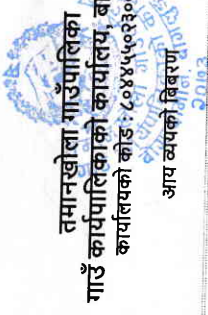 तमानखोला गाउँपालिका
गाउँ कार्यपालिकाको कार्यालय, बा
कार्यालयको कोड : ८०४४५५०२३०
आय व्ययको बिबरण